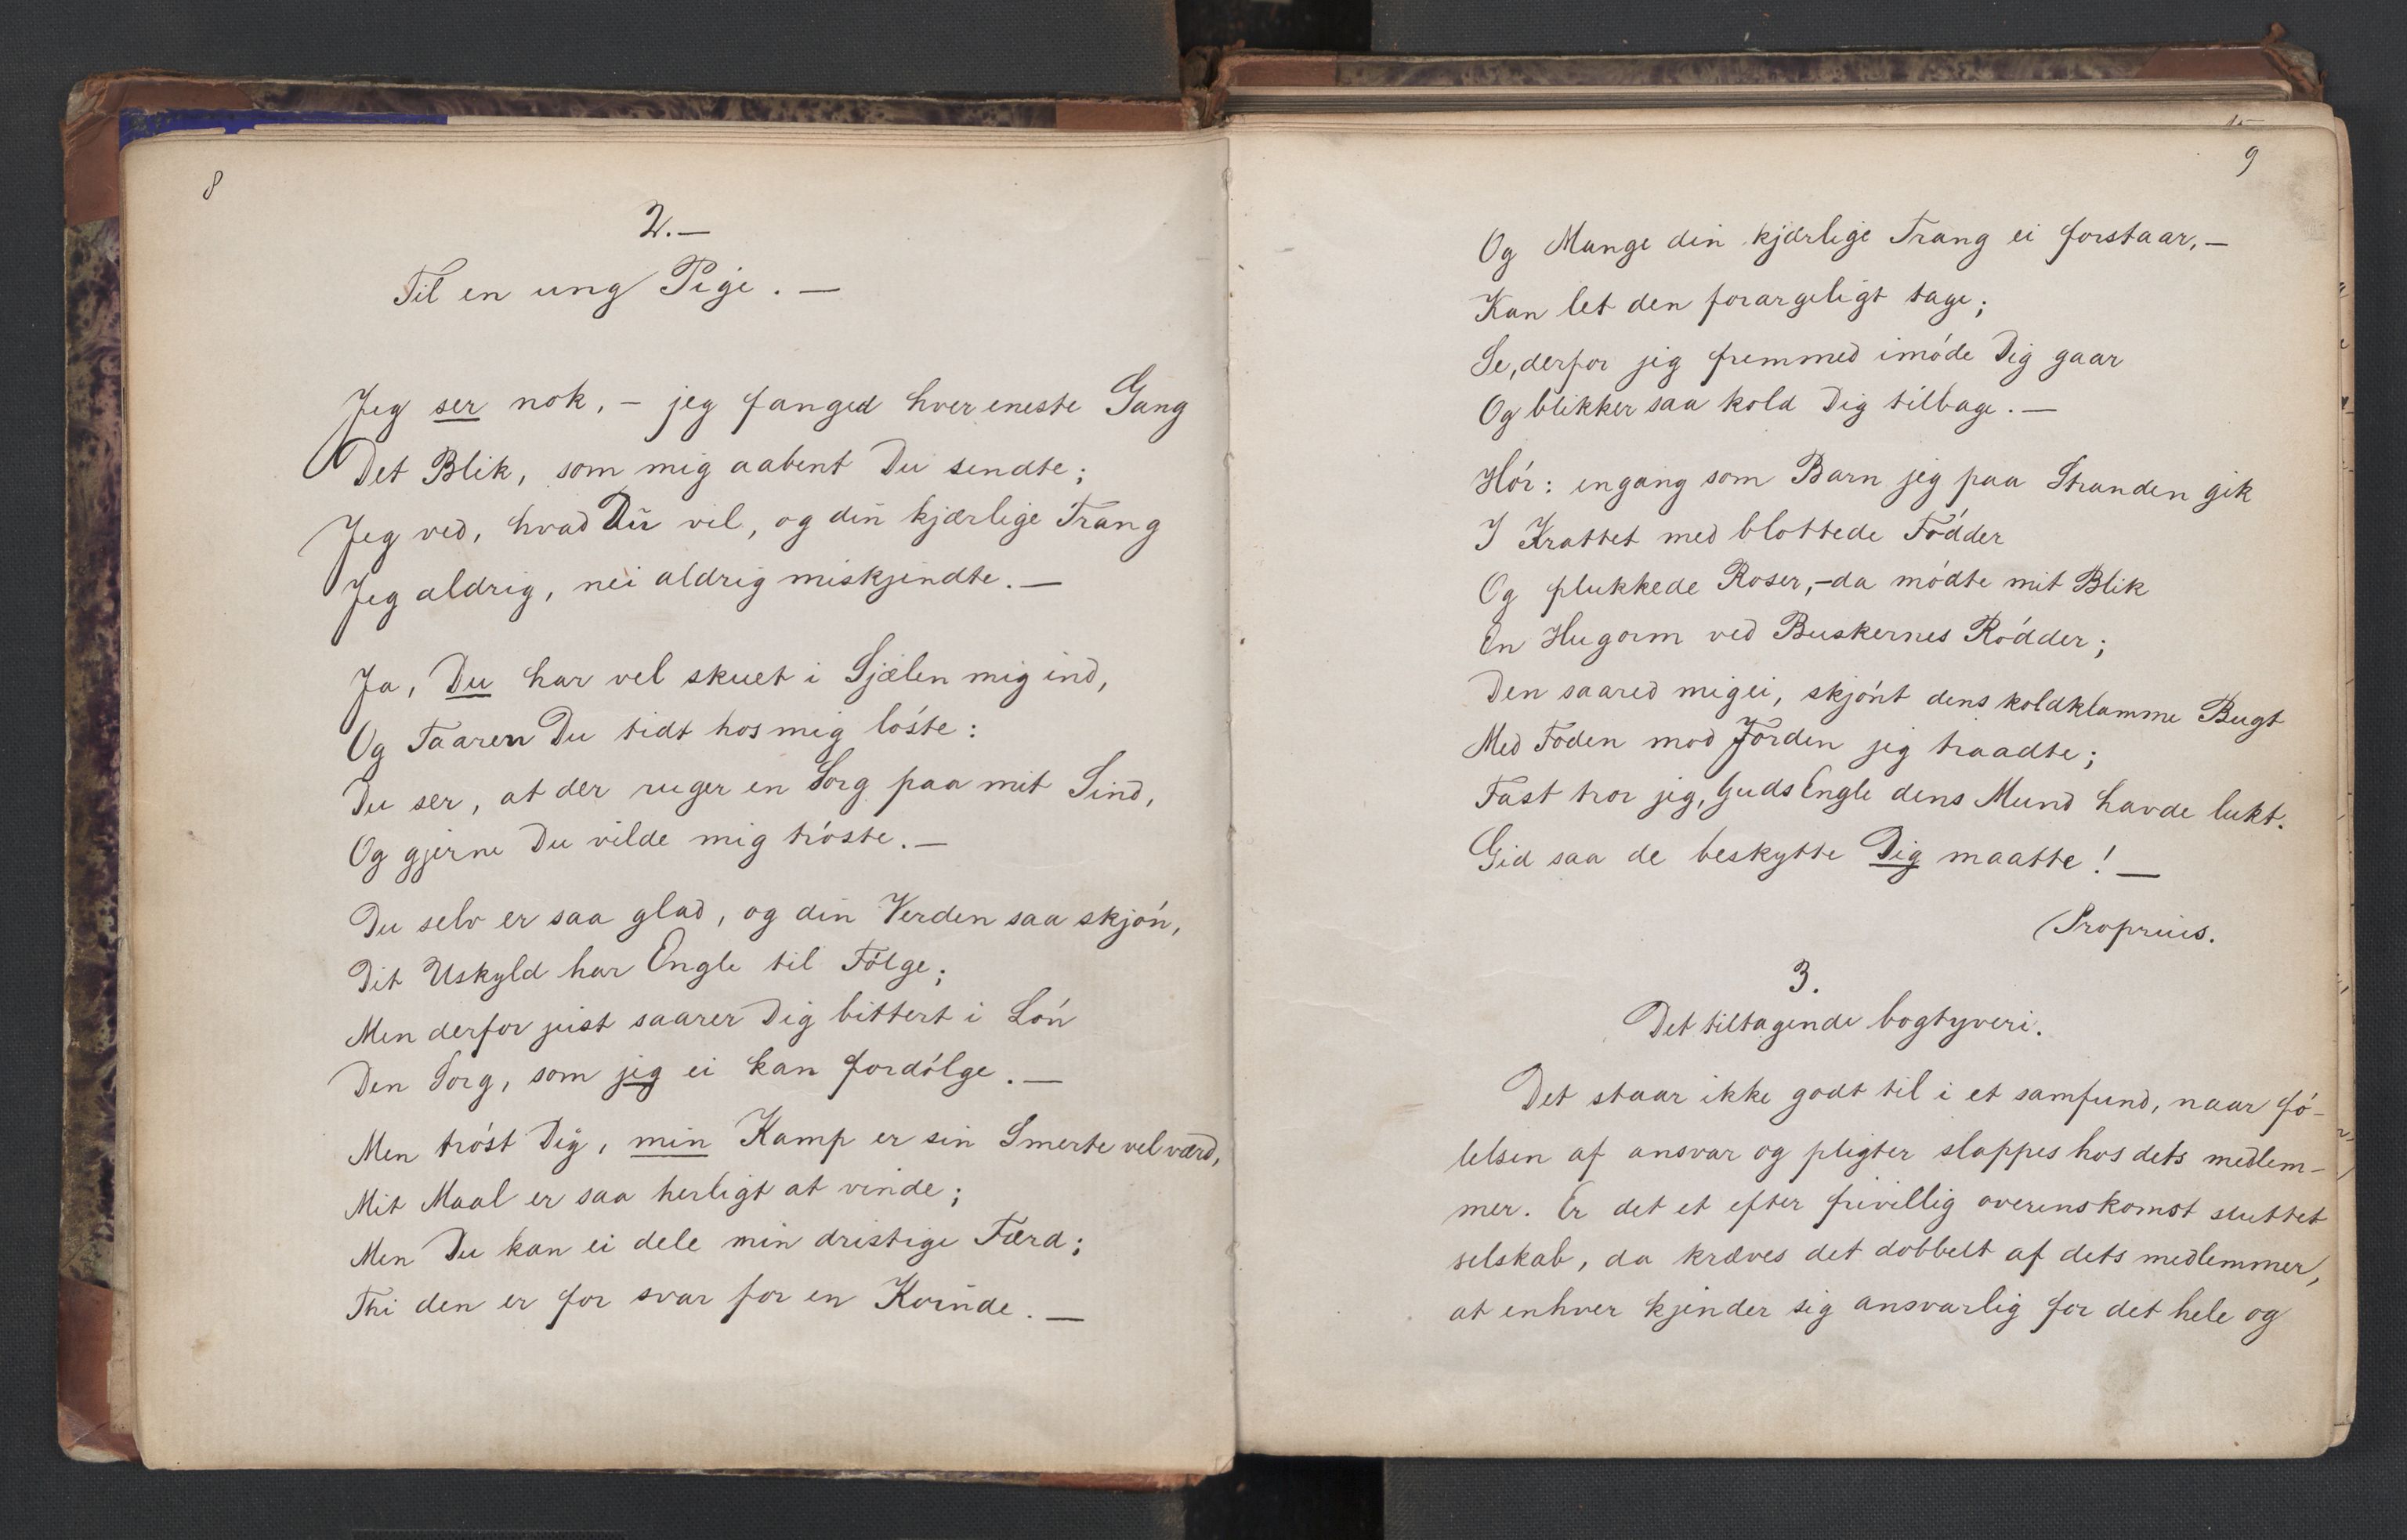 8
2.—
Til en ung Pige. —
Jeg ser nok, – jeg fanged hver eneste Gang
Det Blik, som mig aabent Du sendte;
Jeg ved, hvad Du vil, og din kjærlige Trang
Jeg aldrig, nei aldrig miskjendte. —
Ja, Du har vel skuet i Sjælen mig ind,
Og Taaren Du tidt hos mig lóste:
Du ser, at der ruger en Sorg paa mit Sind,
Og gjerne Du vilde mig tróste. —
Du selv er saa glad, og din Verden saa skjón,
Dit Uskyld har Engle til Fólge;
Men derfor just saarer Dig bittert i Lón
Den Sorg, som jeg ei kan fordólge. —
Men tróst Dig, min Kamp er sin Smerte vel værd,
Mit Maal er saa herligt at vinde;
Men Du kan ei dele min dristige Færd;
Thi den er for svar for en Kvinde. —
9
Og Mange din kjærlige Trang ei forstaar, —
Kan let den forargeligt tage;
Se, derfor jeg fremmed imóde Dig gaar
Og blikker saa kold Dig tilbage. —
Hór: engang som Barn jeg paa Stranden gik
I Krattet med blottede Fódder
Og plukkede Roser, – da módte mit Blik
En Hugorm ved BuskernesRódder;
Den saared mig ei, skjónt dens koldklamme Bugt
Med Foden mod Jorden jeg traadte;
Fast tror jeg, Guds Engle dens Mund havde lukt.
Gid saa de beskytte Dig maatte! —
Proprius.
3.
Det tiltagende bogtyveri.
Det staar ikke godt til i et samfund, naar fó-
lelsen af ansvar og pligter slappes hos dets medlem-
mer. Er det et efter frivillig overenskomst sluttet
selskab, da kræves det dobbelt af dets medlemmer,
at enhver kjender sig ansvarlig for det hele og